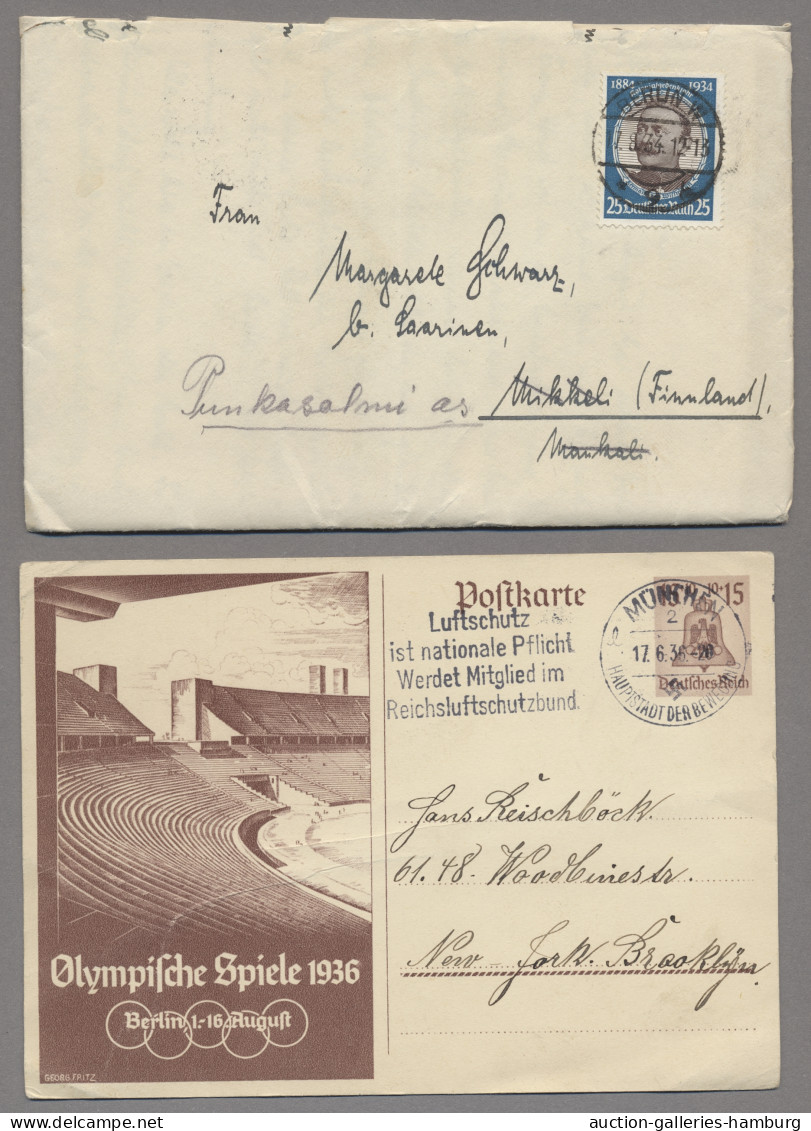 1884 1934
BERLIN W
34. 12-13
25 Deutsches Reich 25
Frau
Margarete Schwarz,
b. Saarinen,
Punkasalmi as Mikkeli (Finnland),
Postkarte
15
Luftschutz
ist nationale Pflicht
Werdet Mitglied im
Reichsluftschutzbund.
MÜNCHEN
2
17.6.36.-20
HAUPTSTADT DER BEWEGUNG
Deutsches Reich
Hans Reischböck.
61.48. Woodbinestr.
New-York. Brooklÿn.
Olympische Spiele 1936
Berlin 1.-16. August
GEORG FRITZ
auction-galleries-hamburg